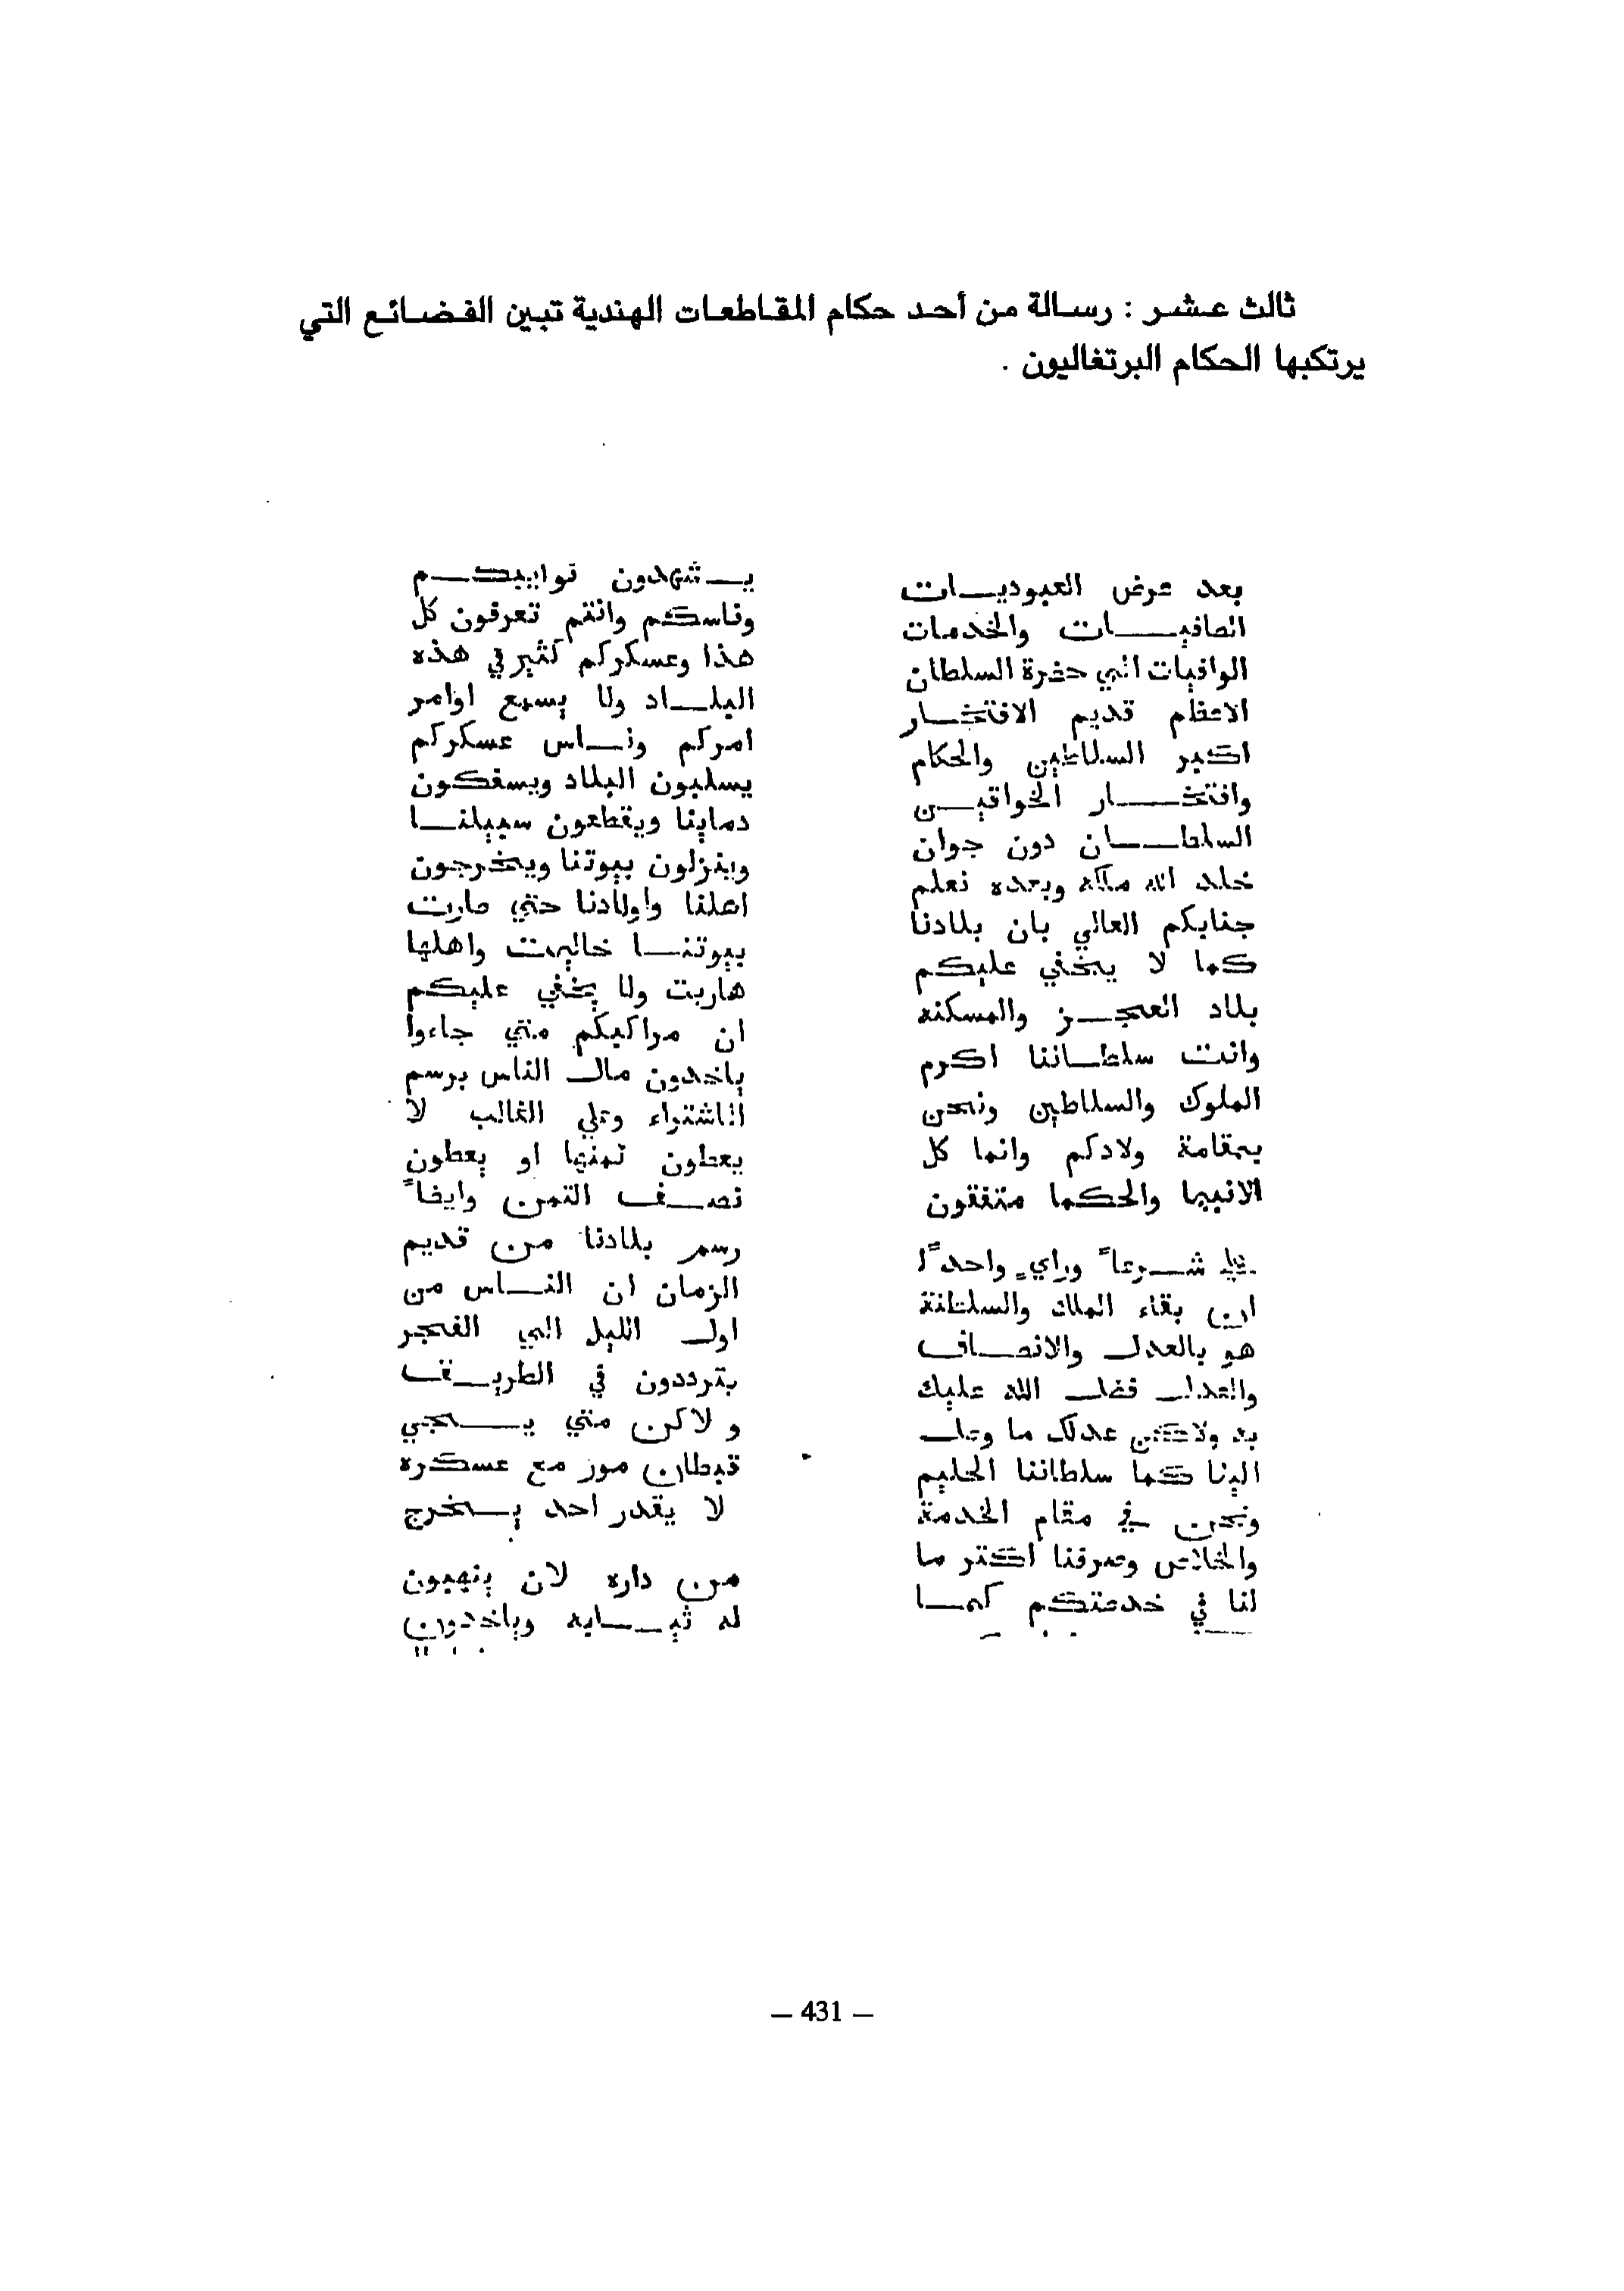 ثالث عشر : رسالة من أحد حكام المقاطعات الهندية تبين الفضائع التي
يرتكبها الحكام البرتغاليون .
بعد عرض العبوديات
الصافيات والخدمات
الوافيات الي حضرة السلطان
الاعظم قديم الافتخار
اكبر السلاطين والحكام
وافتخار الخواقين
السلطان دون جوان
خلد الله ملكه وبعده نعلم
جنابكم العالي بان بلادنا
كما لا يخفي عليكم
بلاد العجز والمسكنه
وانت سلطاننا اكرم
الملوك والسلاطين ونحن
بمقامة ولادكم وانما كل
الانبيا والحكما متفقون
علي شرعاً وراي واحداً
ان بقاء الملك والسلطنة
هو بالعدل والانصاف
والعدل فضل الله عليك
به ولاكن عدلك ما وصل
الينا كما سلطاننا الحليم
ونحن في مقام الخدمة
والخلاص وصرفنا اكتر ما
لنا في خدمتكم كما
يشهدون توابيكم
وناسكم وانتم تعرفون كل
هذا وعسكركم كثير في هذه
البلاد ولا يسمع اوامر
امركم وناس عسكركم
يسلبون البلاد ويسفكون
دماينا ويقطعون سبيلنا
وينزلون بيوتنا ويخرجون
اهلنا واولادنا حتي صارت
بيوتنا خاليت واهلها
هاربت ولا يخفي عليكم
ان مراكبكم متي جاءوا
ياخدون مال الناس برسم
الاشتراء وعلي الغالب لا
يعطون ثمنها او يعطون
نصف التمن وايضاً
رسم بلادنا من قديم
الزمان ان الناس من
اول الليل الي الفجر
يترددون في الطريق
و لاكن متي يجي
قبطان موز مع عسكره
لا يقدر احد يخرج
من داره لان ينهبون
له ثيابه وياخدون
— 431 —